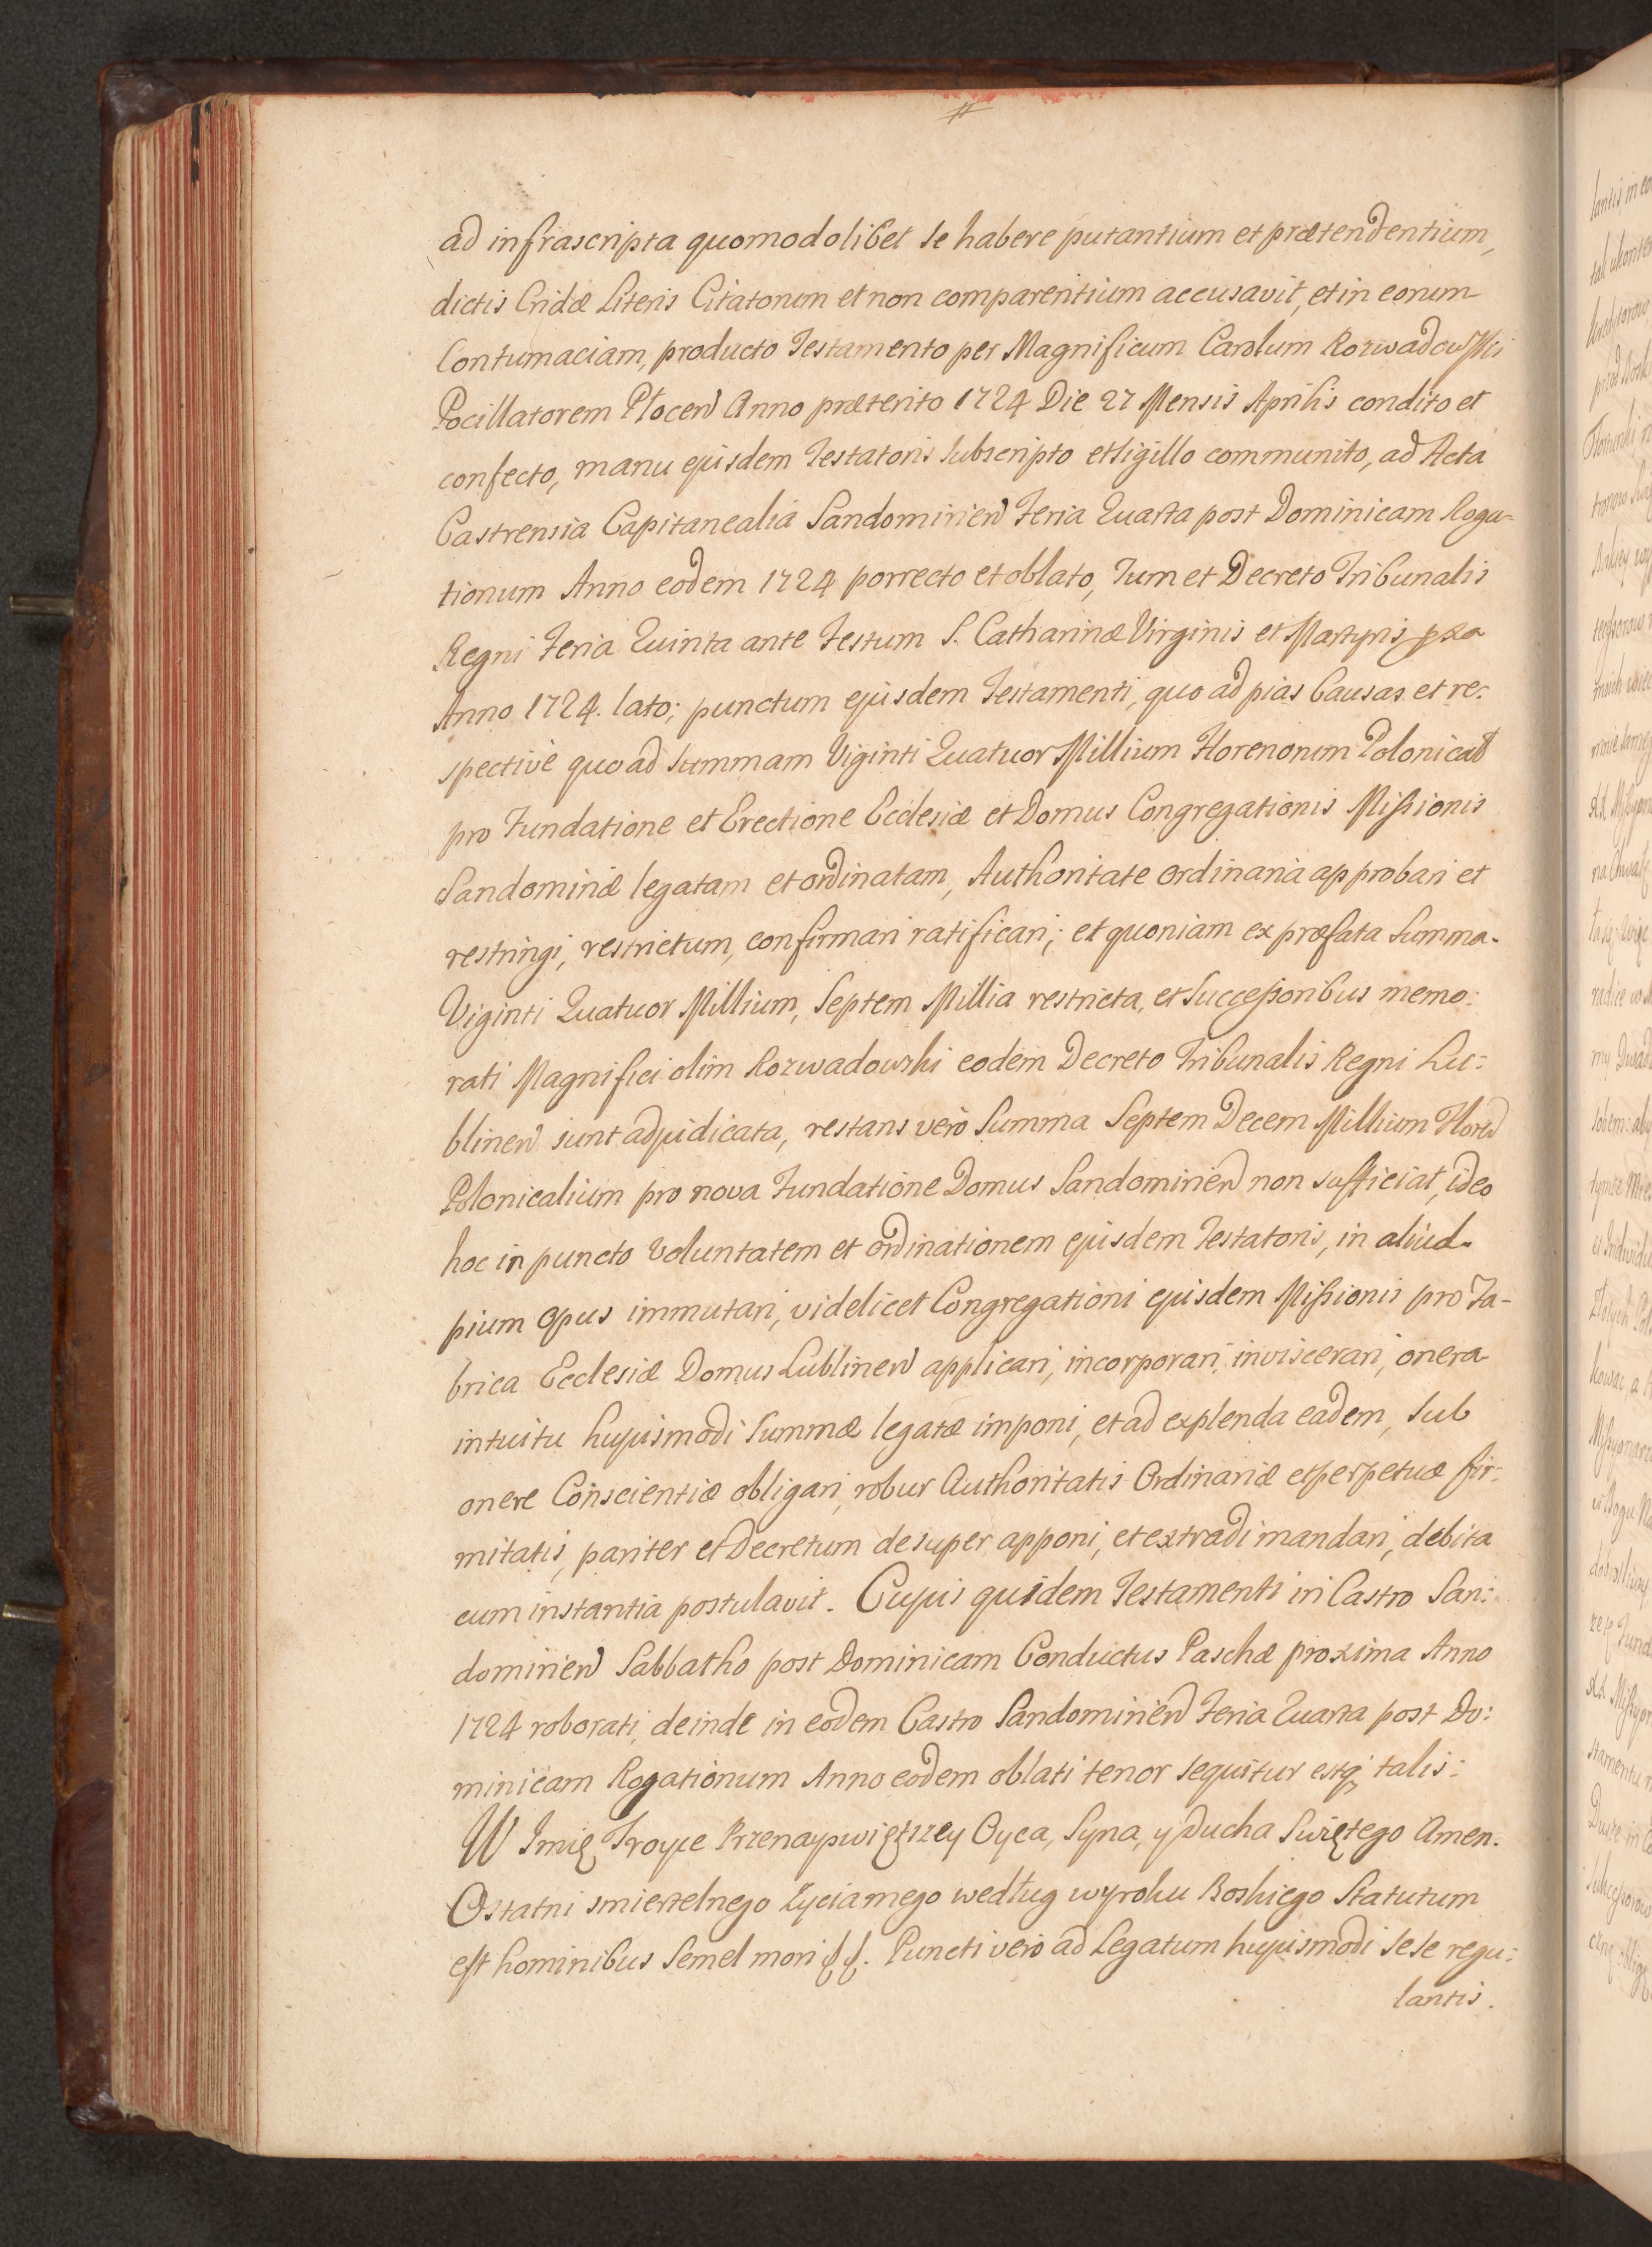 ad infrascripta quomodolibet se habere putantium et prætendentium,
dictis Cridæ Literis Citatorum et non comparentium accusavit, et in eorum
Contumaciam, producto Testamento per Magnificum Carolum Rozwadowski
Pocillatorem Plocen Anno præterito 1724 Die 27 Mensis Aprilis condito et
confecto, manu ejusdem Testatoris subscripto et sigillo communito, ad Acta
Castrensia Capitanealia Sandomirien Feria Quarta post Dominicam Roga-
tionum Anno eodem 1724 porrecto et oblato, Tum et Decreto Tribunalis
Regni Feria Quinta ante Festum S. Catharinæ Virginis et Martyris
Anno 1724. lato; punctum ejusdem Testamenti, quo ad pias Causas et re:
spective quo ad summam Viginti Quatuor Millium Florenorum Polonical
pro Fundatione et Erectione Ecclesiæ et Domus Congregationis Missionis
Sandomiriæ legatam et ordinatam, Authoritate Ordinaria approbari et
restringi, restrictum, confirmari ratificari; et quoniam ex præfata Summa
Viginti Quatuor Millium, Septem Millia restricta, et Successoribus memo:
rati Magnifici olim Rozwadowski eodem Decreto Tribunalis Regni Lu:
blinen sunt adjudicata, restans vero Summa Septem Decem Millium Floren
Polonicalium pro nova Fundatione Domus Sandomirien non sufficiat, ideo
hoc in puncto Voluntatem et ordinationem ejusdem Testatoris, in aliud
pium Opus immutari, videlicet Congregationi ejusdem Missionis pro Fa-
brica Ecclesiæ Domus Lublinen applicari, incorporari, inviscerari, onera
intuitu hujusmodi Summæ legatæ imponi, et ad explenda eadem, sub
onere Conscientiæ obligari, robur Authoritatis Ordinariæ et perpetuæ fir:
mitatis, pariter et Decretum desuper apponi, et extradi mandari, debita
cum instantia postulavit. Cujus quidem Testamenti in Castro San:
domirien Sabbatho post Dominicam Conductus Paschæ proxima Anno
1724 roborati, deinde in eodem Castro Sandomirien Feria Quarta post Do:
minicam Rogationum Anno eodem oblati tenor sequitur estq; talis:
W Imię Troyce Przenayswiętszey Oyca, Syna, y Ducha Swiętego Amen.
Ostatni smiertelnego Życia mego według wyroku Boskiego Statutum
est hominibus Semel mori &&. Puncti vero ad Legatum hujusmodi sese regu:
lantis.